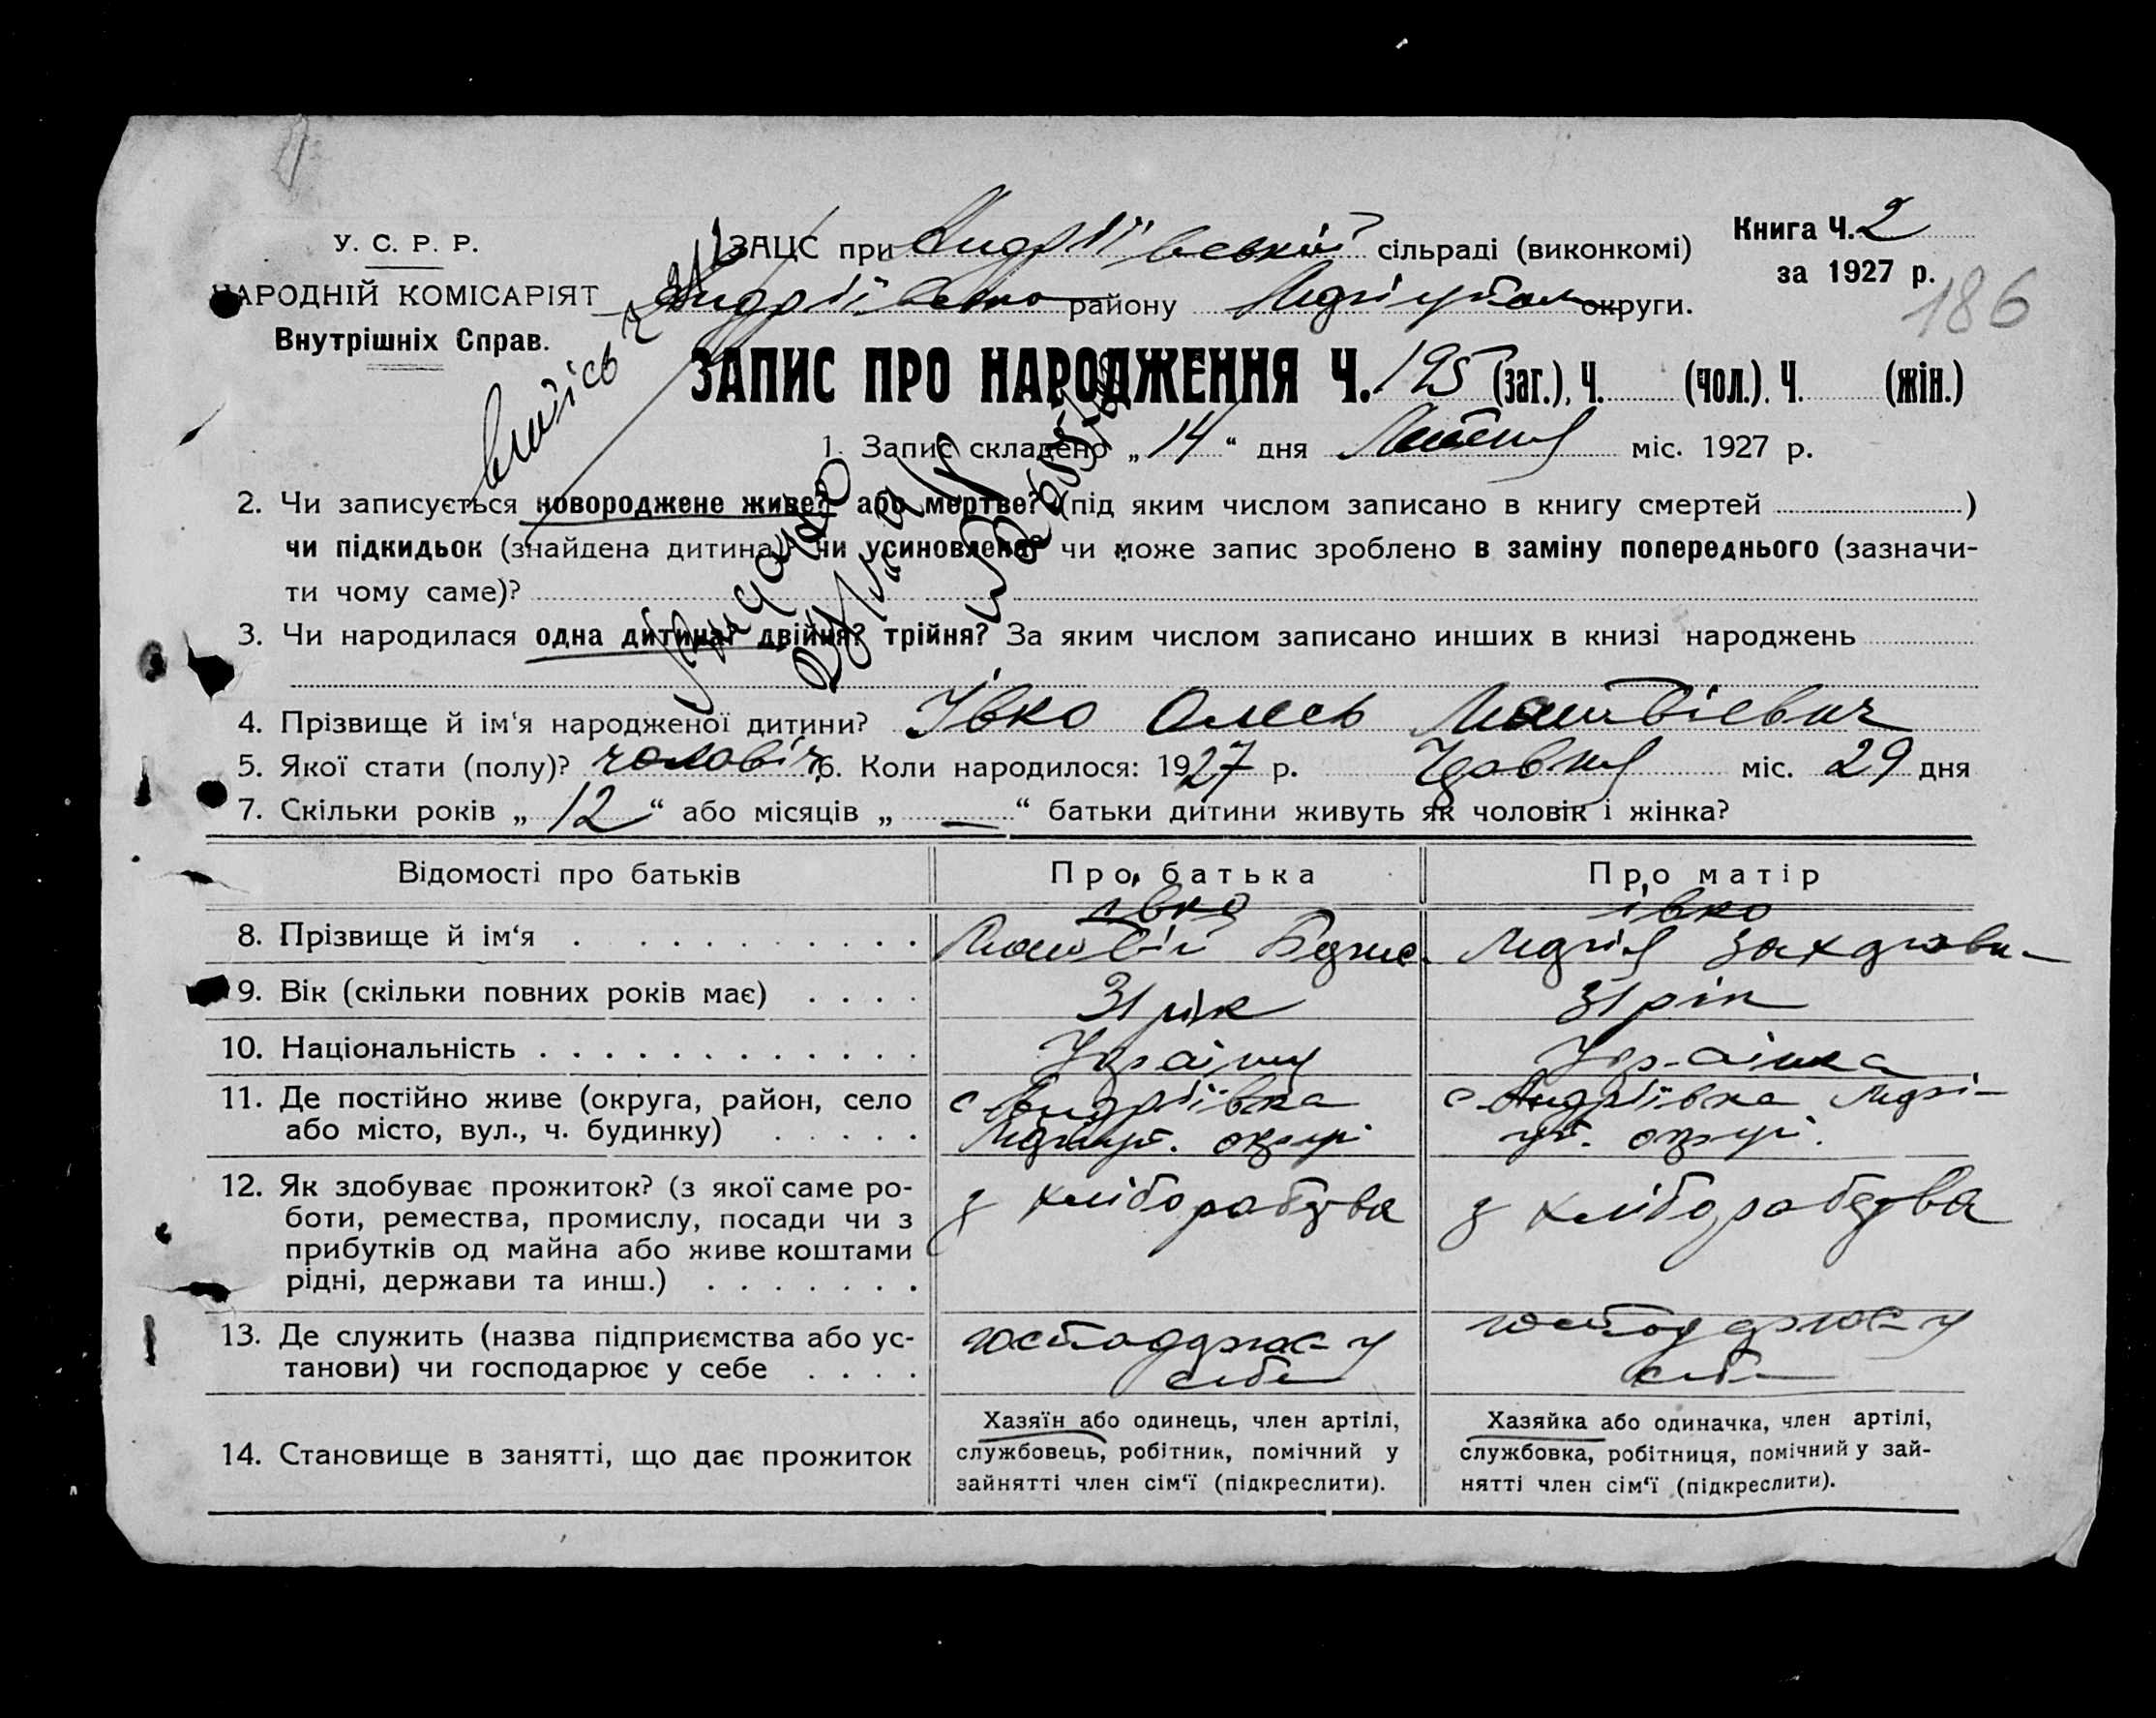 У. С. Р. Р.
НАРОДНІЙ КОМІСАРІЯТ
Внутрішніх Справ.
ЗАЦС при Андріївській сільраді (виконкомі)
Андріївсько району Маріупол округи.
Книга Ч. 2
за 1927 р.
186
ЗАПИС ПРО НАРОДЖЕННЯ Ч. 195 (заг.), Ч. (чол.). Ч. (жін.)
1. Запис складено „14“ дня Липня міс. 1927 р.
2. Чи записується новороджене живе? або мертве? (під яким числом записано в книгу смертей )
чи підкидьок (знайдена дитина)? чи усиновлена? чи може запис зроблено в заміну попереднього (зазначи-
ти чому саме)?
3. Чи народилася одна дитина? двійня? трійня? За яким числом записано инших в книзі народжень
4. Прізвище й ім‘я народженої дитини? Івко Олесь Матвієвич
5. Якої стати (полу)? чоловіч 6. Коли народилося: 1927 р. Червня міс. 29 дня
7. Скільки років „12“ або місяців „—“ батьки дитини живуть як чоловік і жінка?
Відомості про батьків Про батька Про матір
8. Прізвище й ім‘я Івко Матвій Івко Марія
9. Вік (скільки повних років має) 31 рік 31 рік
10. Національність Українц Українка
11. Де постійно живе (округа, район, село
або місто, вул., ч. будинку)
с Андріївка
Маріуп. округи
с Андріївка Марі-
уп. округи.
12. Як здобуває прожиток? (з якої саме ро-
боти, ремества, промислу, посади чи з
прибутків од майна або живе коштами
рідні, держави та инш.)
з хліборобства
з хліборобства
13. Де служить (назва підприємства або ус-
танови) чи господарює у себе
господарює у
себе
господарює у
себе
14. Становище в занятті, що дає прожиток
Хазяїн або одинець, член артілі,
службовець, робітник, помічний у
зайнятті член сім‘ї (підкреслити).
Хазяйка або одиначка, член артілі,
службовка, робітниця, помічний у зай-
нятті член сім‘ї (підкреслити).